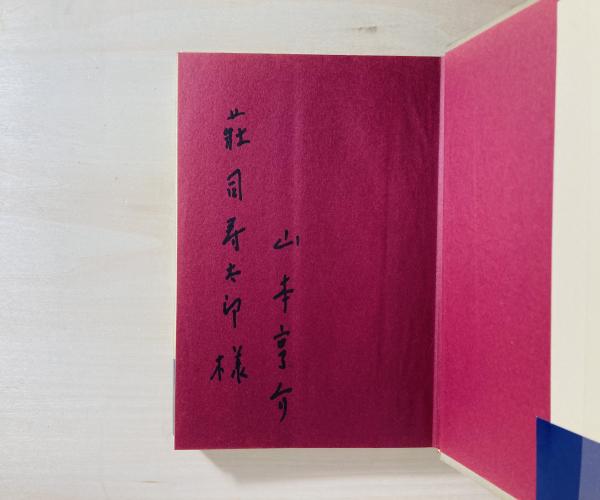 山本亨介
莊司寿太郎様